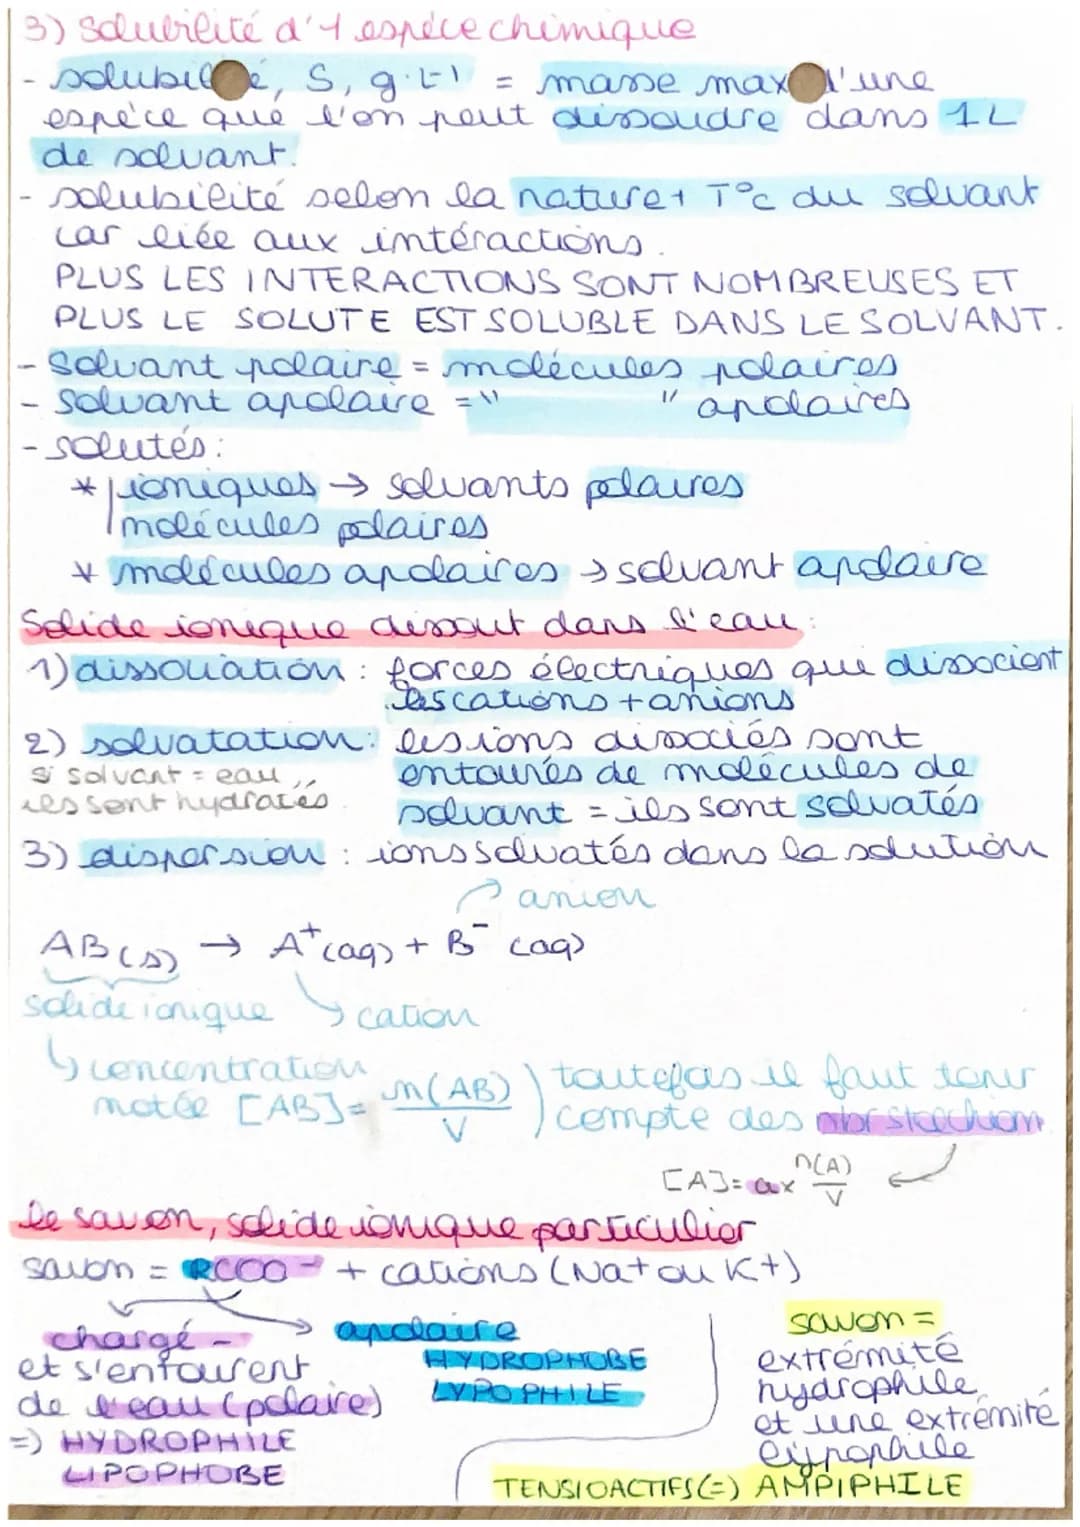 3) Solubilité d'1 espèce chimique
- solubilité, S, g.L-1 = masse max d'une
espèce que l'on peut dissoudre dans 1L
de solvant.
- solubilité selon la nature + T°C du solvant
car liée aux intéractions.
PLUS LES INTERACTIONS SONT NOMBREUSES ET
PLUS LE SOLUTE EST SOLUBLE DANS LE SOLVANT.
- Solvant polaire = molécules polaires
- Solvant apolaire = " " apolaires
- solutés :
* ioniques → solvants polaires
molécules polaires
* molécules apolaires → solvant apolaire
Solide ionique dissout dans l'eau :
1) dissociation : forces électriques qui dissocient
les cations + anions
2) solvatation : les ions dissociés sont
si solvant = eau,, entourés de molécules de
ils sont hydratés solvant = ils sont solvatés
3) dispersion : ions solvatés dans la solution
anion
AB(s) → A+(aq) + B-(aq)
solide ionique cation
concentration
notée [AB] = n(AB)/V ) toutefois il faut tenir
compte des nbr stœchiom
[A] = a x n(A)/V
Le savon, solide ionique particulier
savon = RCOO- + cations (Na+ ou K+)
chargé -
et s'entourent
de l'eau (polaire)
=) HYDROPHILE
LIPOPHOBE
apolaire
HYDROPHOBE
LYPOPHILE
savon =
extrémité
hydrophile
et une extrémité
lypophile
TENSIOACTIFS (=) AMPIPHILE